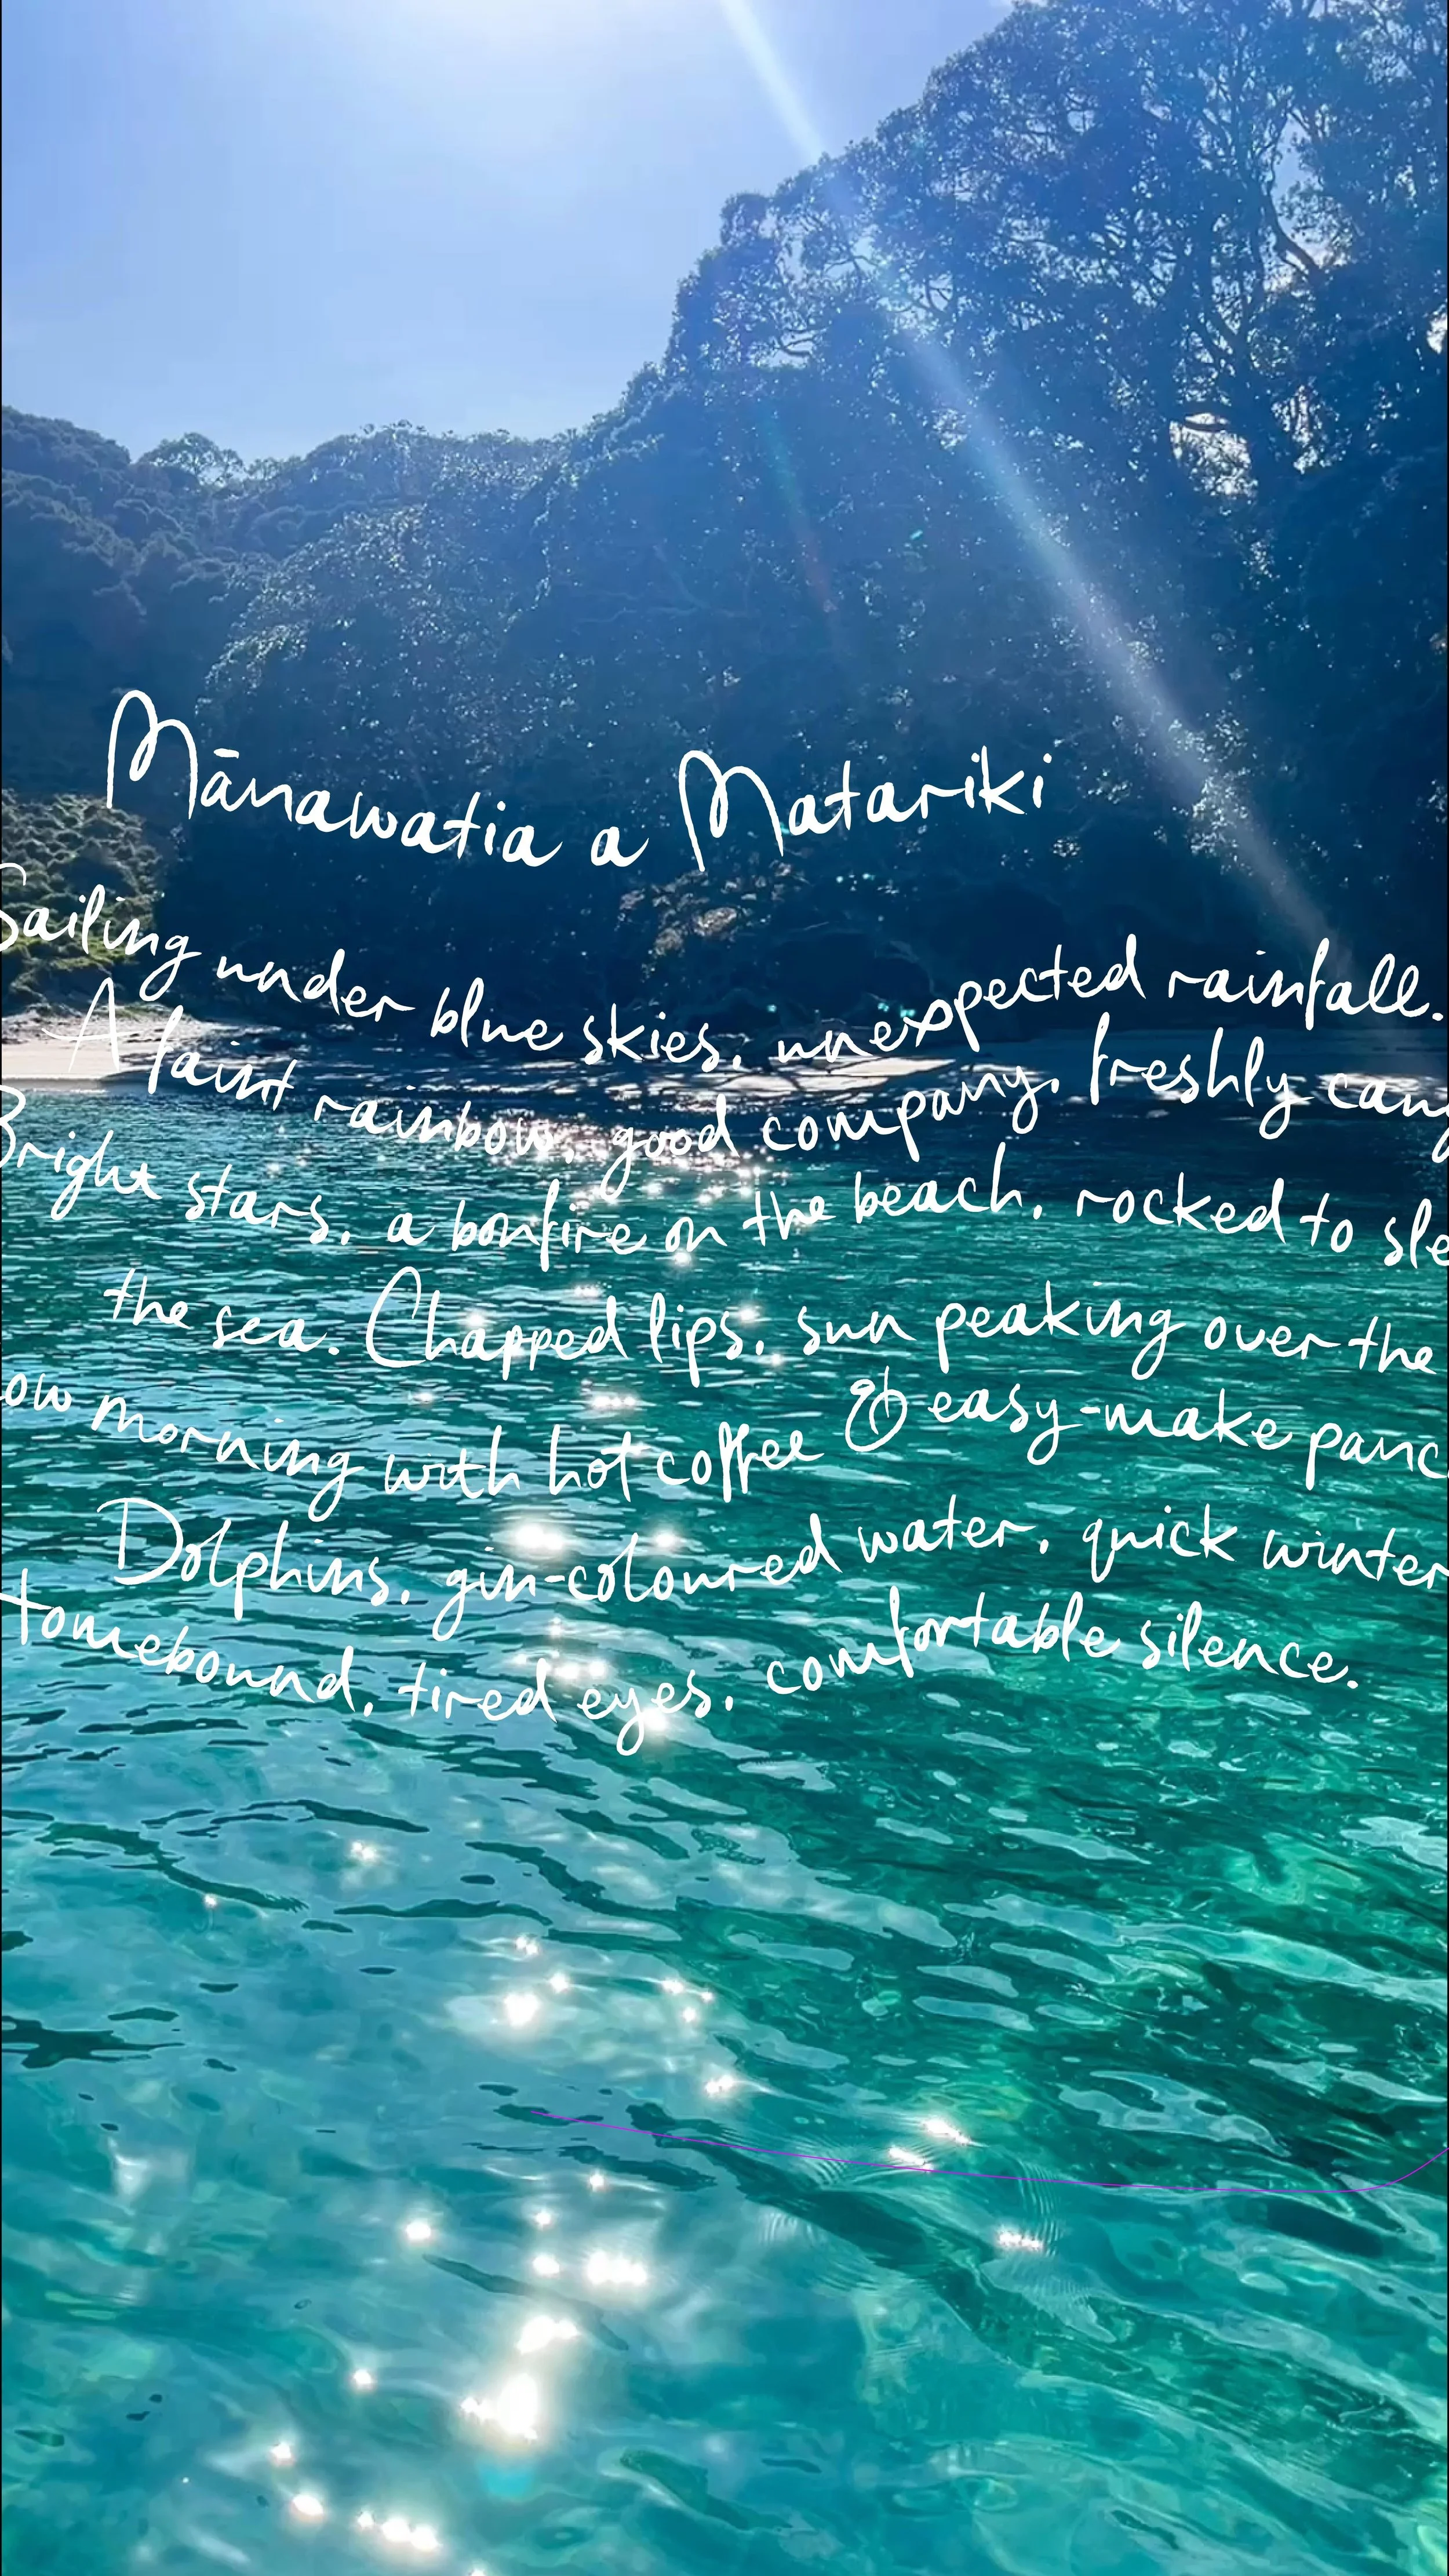 Mānawatia a Matariki
Sailing under blue skies, unexpected rainfall.
A faint rainbow, good company, freshly
Bright stars, a bonfire on the beach, rocked to
the sea. Chapped lips, sun peaking over the
morning with hot coffee & easy-make
Dolphins, gin-coloured water, quick winter
Homebound, tired eyes, comfortable silence.